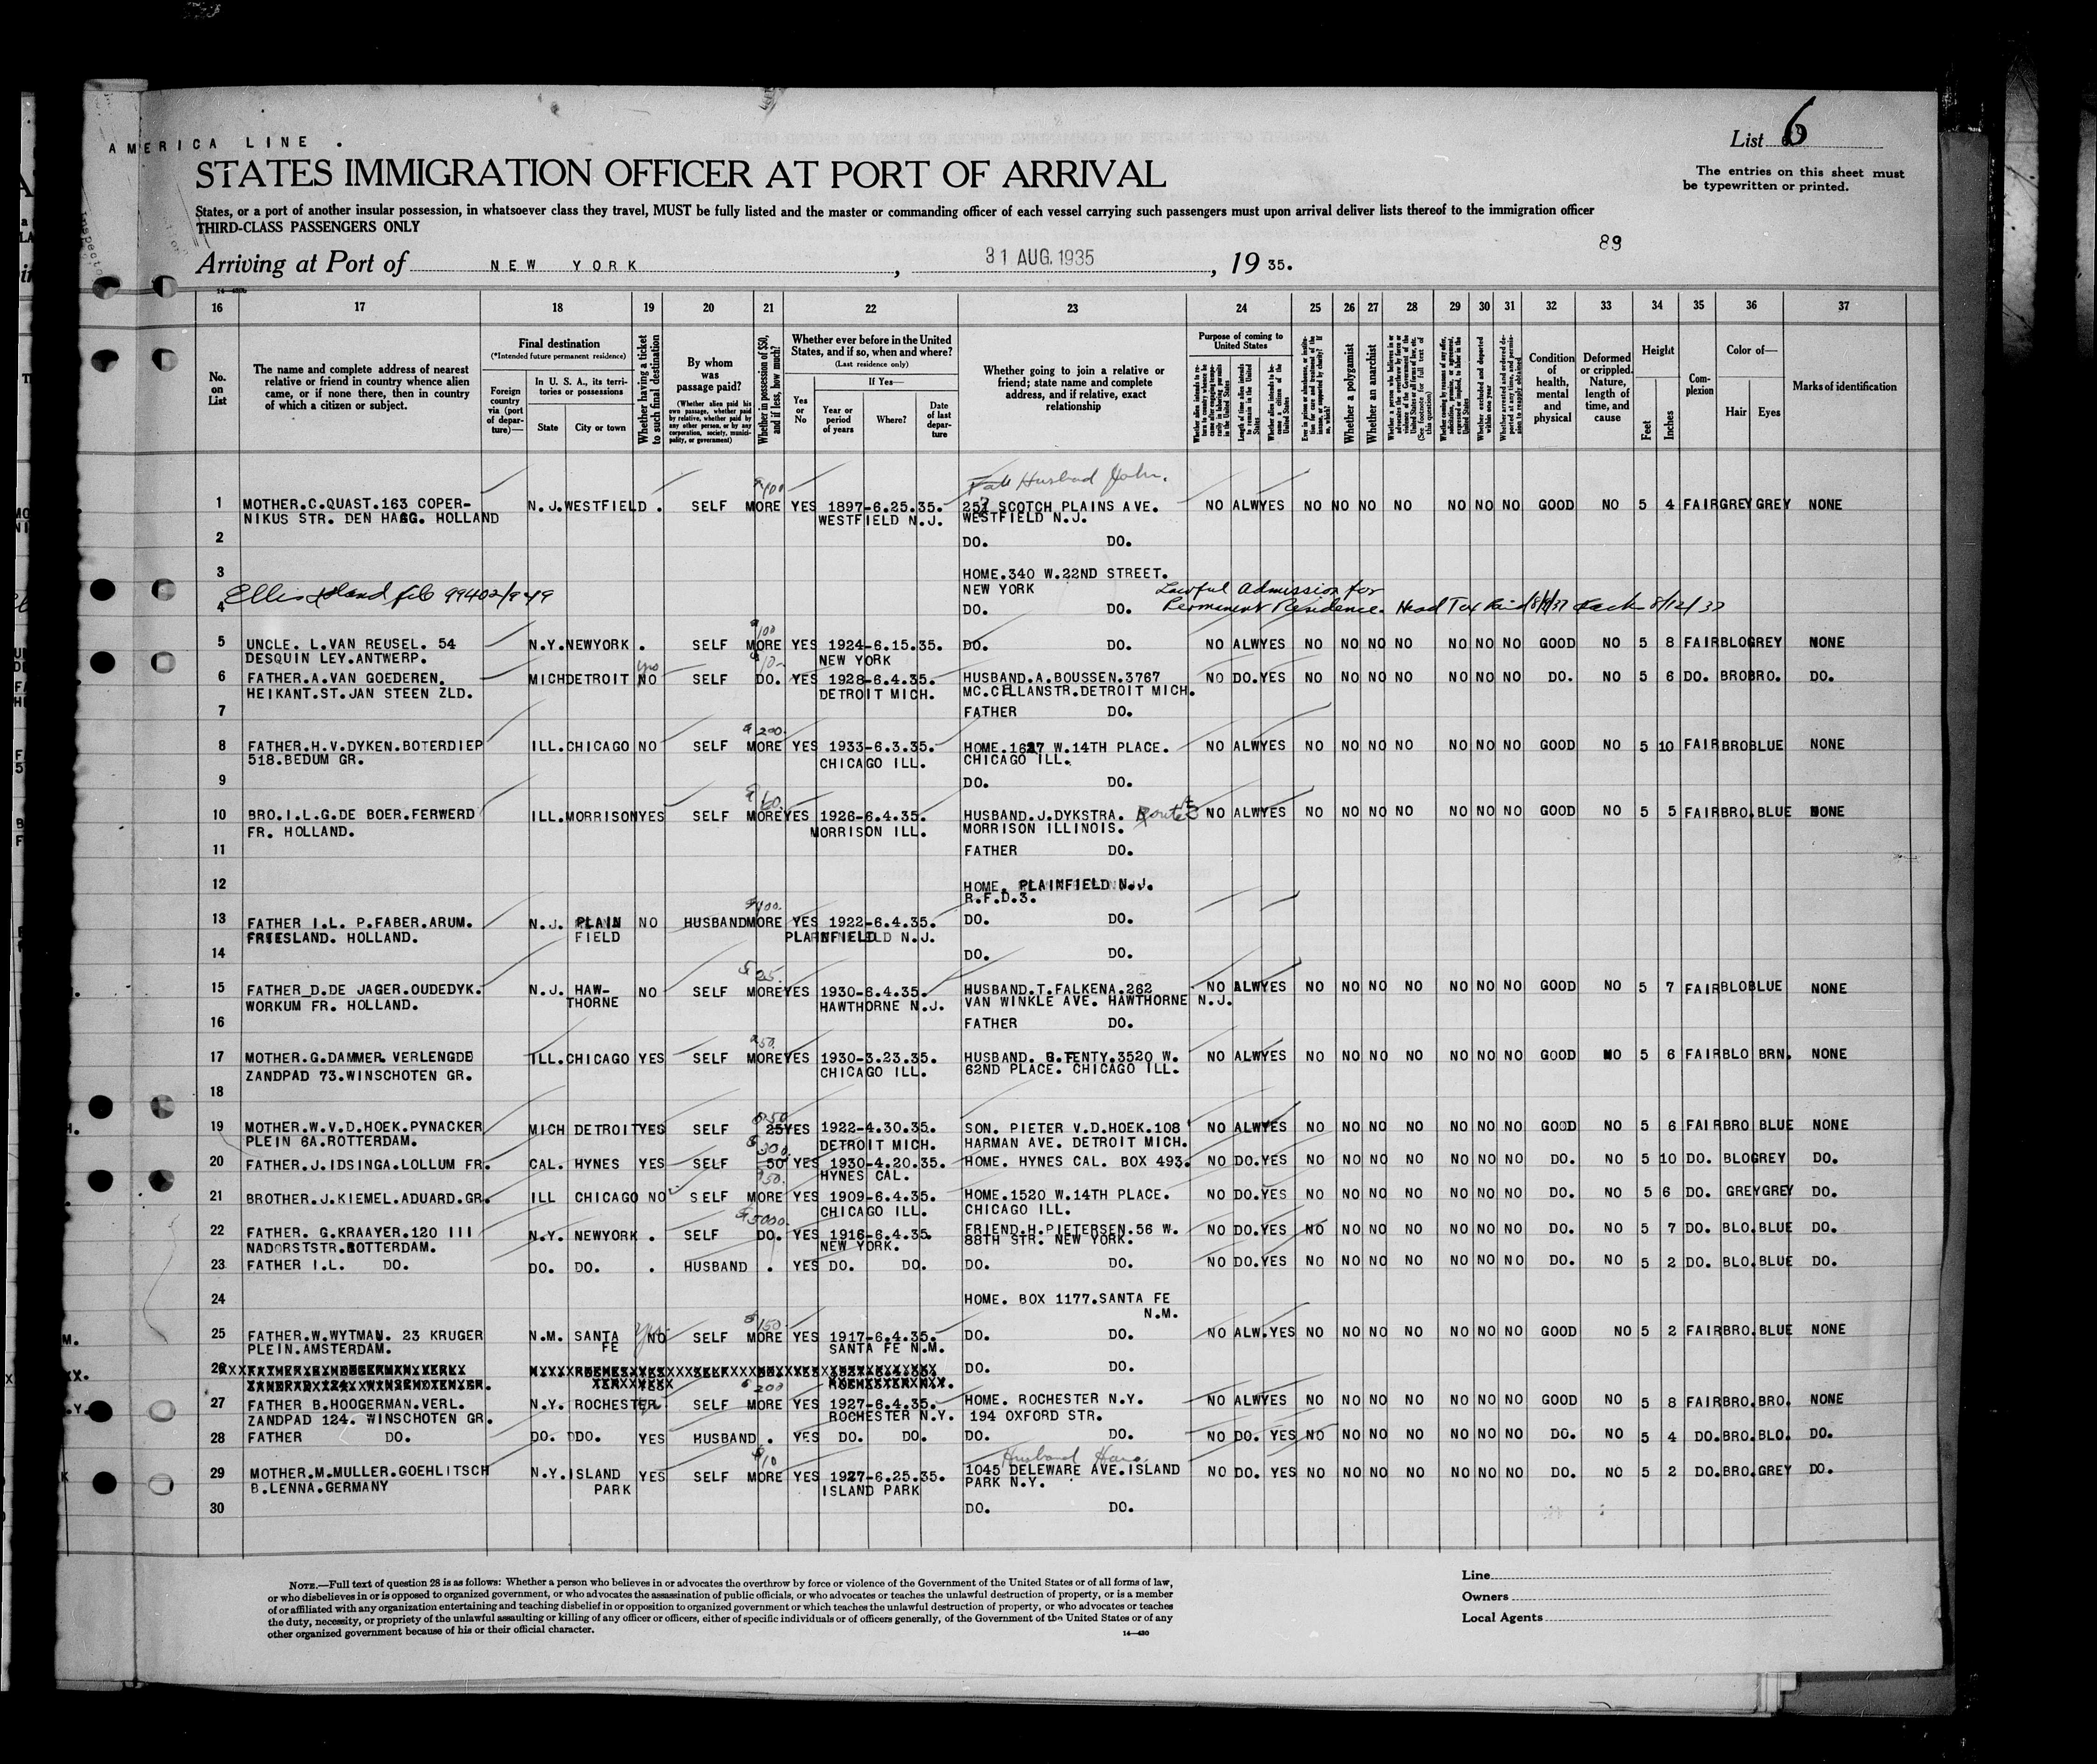 AMERICA LINE .
List 6
STATES IMMIGRATION OFFICER AT PORT OF ARRIVAL
The entries on this sheet must
be typewritten or printed.
States, or a port of another insular possession, in whatsoever class they travel, MUST be fully listed and the master or commanding officer of each vessel carrying such passengers must upon arrival deliver lists thereof to the immigration officer
THIRD-CLASS PASSENGERS ONLY
89
Arriving at Port of NEW YORK , 31 AUG. 1935 , 19 35.
16 17 18 19 20 21 22 23 24 25 26 27 28 29 30 31 32 33 34 35 36 37
No. on List
The name and complete address of nearest
relative or friend in country whence alien
came, or if none there, then in country
of which a citizen or subject.
Final destination
(*Intended future permanent residence)
Foreign country via (port of departure)—
In U. S. A., its territories or possessions
State
City or town
Whether having a ticket to such final destination
By whom was passage paid?
(Whether alien paid his own passage, whether paid by relative, whether paid by any other person, or by any corporation, society, municipality, or government)
Whether in possession of $50, and if less, how much?
Whether ever before in the United
States, and if so, when and where?
(Last residence only)
Yes or No
If Yes—
Year or period of years
Where?
Date of last departure
Whether going to join a relative or
friend; state name and complete
address, and if relative, exact
relationship
Purpose of coming to United States
Whether a polygamist
Whether an anarchist
Condition of health, mental and physical
Deformed or crippled. Nature, length of time, and cause
Height
Feet
Inches
Complexion
Color of—
Hair
Eyes
Marks of identification
Husband John.
$100
1 MOTHER.C.QUAST.163 COPER- N.J. WESTFIELD . SELF MORE YES 1897-6.25.35. 257 SCOTCH PLAINS AVE. NO ALW YES NO NO NO NO NO NO GOOD NO 5 4 FAIR GREY GREY NONE
NIKUS STR. DEN HAGG. HOLLAND WESTFIELD N.J. WESTFIELD N.J.
2 DO. DO.
3 HOME.340 W.22ND STREET.
NEW YORK
Ellis Island file 99402/949
Lawful Admission for
Permanent Residence. Head Tax Paid
4 DO. DO.
100
5 UNCLE. L.VAN REUSEL. 54 N.Y. NEWYORK . SELF MORE YES 1924-6.15.35. DO. DO. NO ALW YES NO NO NO NO NO NO NO GOOD NO 5 8 FAIR BLO GREY NONE
DESQUIN LEY.ANTWERP. NEW YORK
yes
6 FATHER.A.VAN GOEDEREN. MICH DETROIT NO SELF DO. YES 1928-6.4.35. HUSBAND.A.BOUSSEN.3767 NO DO. YES NO NO NO NO NO NO NO DO. NO 5 6 DO. BRO BRO. DO.
HEIKANT.ST.JAN STEEN ZLD. DETROIT MICH. MC.CELLANSTR.DETROIT MICH.
7 FATHER DO.
200
8 FATHER.H.V.DYKEN.BOTERDIEP ILL. CHICAGO NO SELF MORE YES 1933-6.3.35. HOME.1627 W.14TH PLACE. NO ALW YES NO NO NO NO NO NO NO GOOD NO 5 10 FAIR BRO BLUE NONE
518.BEDUM GR. CHICAGO ILL. CHICAGO ILL.
9 DO. DO.
60
10 BRO.I.L.G.DE BOER.FERWERD ILL. MORRISON YES SELF MORE YES 1926-6.4.35. HUSBAND.J.DYKSTRA. NO ALW YES NO NO NO NO NO NO NO GOOD NO 5 5 FAIR BRO. BLUE NONE
FR. HOLLAND. MORRISON ILL. MORRISON ILLINOIS.
11 FATHER DO.
12 HOME. PLAINFIELD N.J.
R.F.D.3.
100.
13 FATHER I.L. P.FABER.ARUM. N.J. PLAIN NO HUSBAND MORE YES 1922-6.4.35. DO. DO.
FRIESLAND. HOLLAND. FIELD PLAINFIELD N.J.
14 DO. DO.
25.
15 FATHER D.DE JAGER.OUDEDYK. N.J. HAW- NO SELF MORE YES 1930-6.4.35. HUSBAND.T.FALKENA.262 NO ALW YES NO NO NO NO NO NO NO GOOD NO 5 7 FAIR BLO BLUE NONE
WORKUM FR. HOLLAND. THORNE HAWTHORNE N.J. VAN WINKLE AVE. HAWTHORNE N.J.
16 FATHER DO.
50.
17 MOTHER.G.DAMMER VERLENGDE ILL. CHICAGO YES SELF MORE YES 1930-3.23.35. HUSBAND. FENTY.3520 W. NO ALW YES NO NO NO NO NO NO NO GOOD NO 5 6 FAIR BLO BRN. NONE
ZANDPAD 73.WINSCHOTEN GR. CHICAGO ILL. 62ND PLACE. CHICAGO ILL.
18
50
19 MOTHER.W.V.D.HOEK.PYNACKER MICH DETROIT YES SELF 25 YES 1922-4.30.35. SON. PIETER V.D.HOEK.108 NO ALW YES NO NO NO NO NO NO NO GOOD NO 5 6 FAIR BRO BLUE NONE
PLEIN 6A.ROTTERDAM. DETROIT MICH. HARMAN AVE. DETROIT MICH.
300.
20 FATHER.J.IDSINGA.LOLLUM FR. CAL. HYNES YES SELF 50 YES 1930-4.20.35. HOME. HYNES CAL. BOX 493. NO DO. YES NO NO NO NO NO NO NO DO. NO 5 10 DO. BLO GREY DO.
HYNES CAL.
50.
21 BROTHER.J.KIEMEL.ADUARD.GR. ILL CHICAGO NO SELF MORE YES 1909-6.4.35. HOME.1520 W.14TH PLACE. NO DO. YES NO NO NO NO NO NO NO DO. NO 5 6 DO. GREY GREY DO.
CHICAGO ILL. CHICAGO ILL.
5000.
22 FATHER. G.KRAAYER.120 III N.Y. NEWYORK . SELF DO. YES 1916-6.4.35. FRIEND.H.PIETERSEN.56 W. NO DO. YES NO NO NO NO NO NO NO DO. NO 5 7 DO. BLO. BLUE DO.
NADORSTSTR.ROTTERDAM. NEW YORK. 88TH STR. NEW YORK.
23 FATHER I.L. DO. DO. DO. . HUSBAND . YES DO. DO. DO. DO. NO DO. YES NO NO NO NO NO NO NO DO. NO 5 2 DO. BLO. BLUE DO.
24 HOME. BOX 1177.SANTA FE
N.M.
150.
25 FATHER.W.WYTMAN. 23 KRUGER N.M. SANTA NO SELF MORE YES 1917-6.4.35. DO. DO. NO ALW. YES NO NO NO NO NO NO NO GOOD NO 5 2 FAIR BRO. BLUE NONE
PLEIN.AMSTERDAM. FE SANTA FE N.M.
26 DO. DO.
200
27 FATHER B.HOOGERMAN.VERL. N.Y. ROCHESTER SELF MORE YES 1927-6.4.35. HOME. ROCHESTER N.Y. NO ALW YES NO NO NO NO NO NO NO GOOD NO 5 8 FAIR BRO. BRO. NONE
ZANDPAD 124. WINSCHOTEN GR. ROCHESTER N.Y. 194 OXFORD STR.
28 FATHER DO. DO. DO. YES HUSBAND . YES DO. DO. DO. DO. NO DO. YES NO NO NO NO NO NO NO DO. NO 5 4 DO. BRO. BLO. DO.
$10 Husband Hans.
29 MOTHER.M.MULLER.GOEHLITSCH N.Y. ISLAND YES SELF MORE YES 1927-6.25.35. 1045 DELEWARE AVE.ISLAND NO DO. YES NO NO NO NO NO NO NO DO. NO 5 2 DO. BRO. GREY DO.
B.LENNA.GERMANY PARK ISLAND PARK PARK N.Y.
30 DO. DO.
NOTE.—Full text of question 28 is as follows: Whether a person who believes in or advocates the overthrow by force or violence of the Government of the United States or of all forms of law,
or who disbelieves in or is opposed to organized government, or who advocates the assassination of public officials, or who advocates or teaches the unlawful destruction of property, or is a member
of or affiliated with any organization entertaining and teaching disbelief in or opposition to organized government or which teaches the unlawful destruction of property, or who advocates or teaches
the duty, necessity, or propriety of the unlawful assaulting or killing of any officer or officers, either of specific individuals or of officers generally, of the Government of the United States or of any
other organized government because of his or their official character.
14—430
Line
Owners
Local Agents